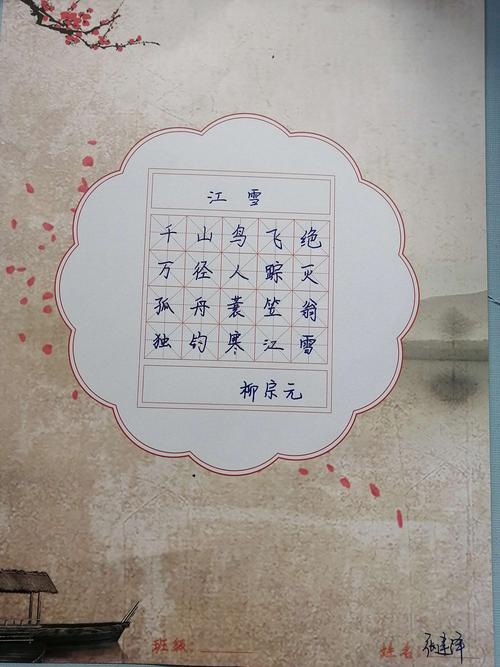 江雪
千山鸟飞绝
万径人踪灭
孤舟蓑笠翁
独钓寒江雪
柳宗元
班级
姓名 张建泽